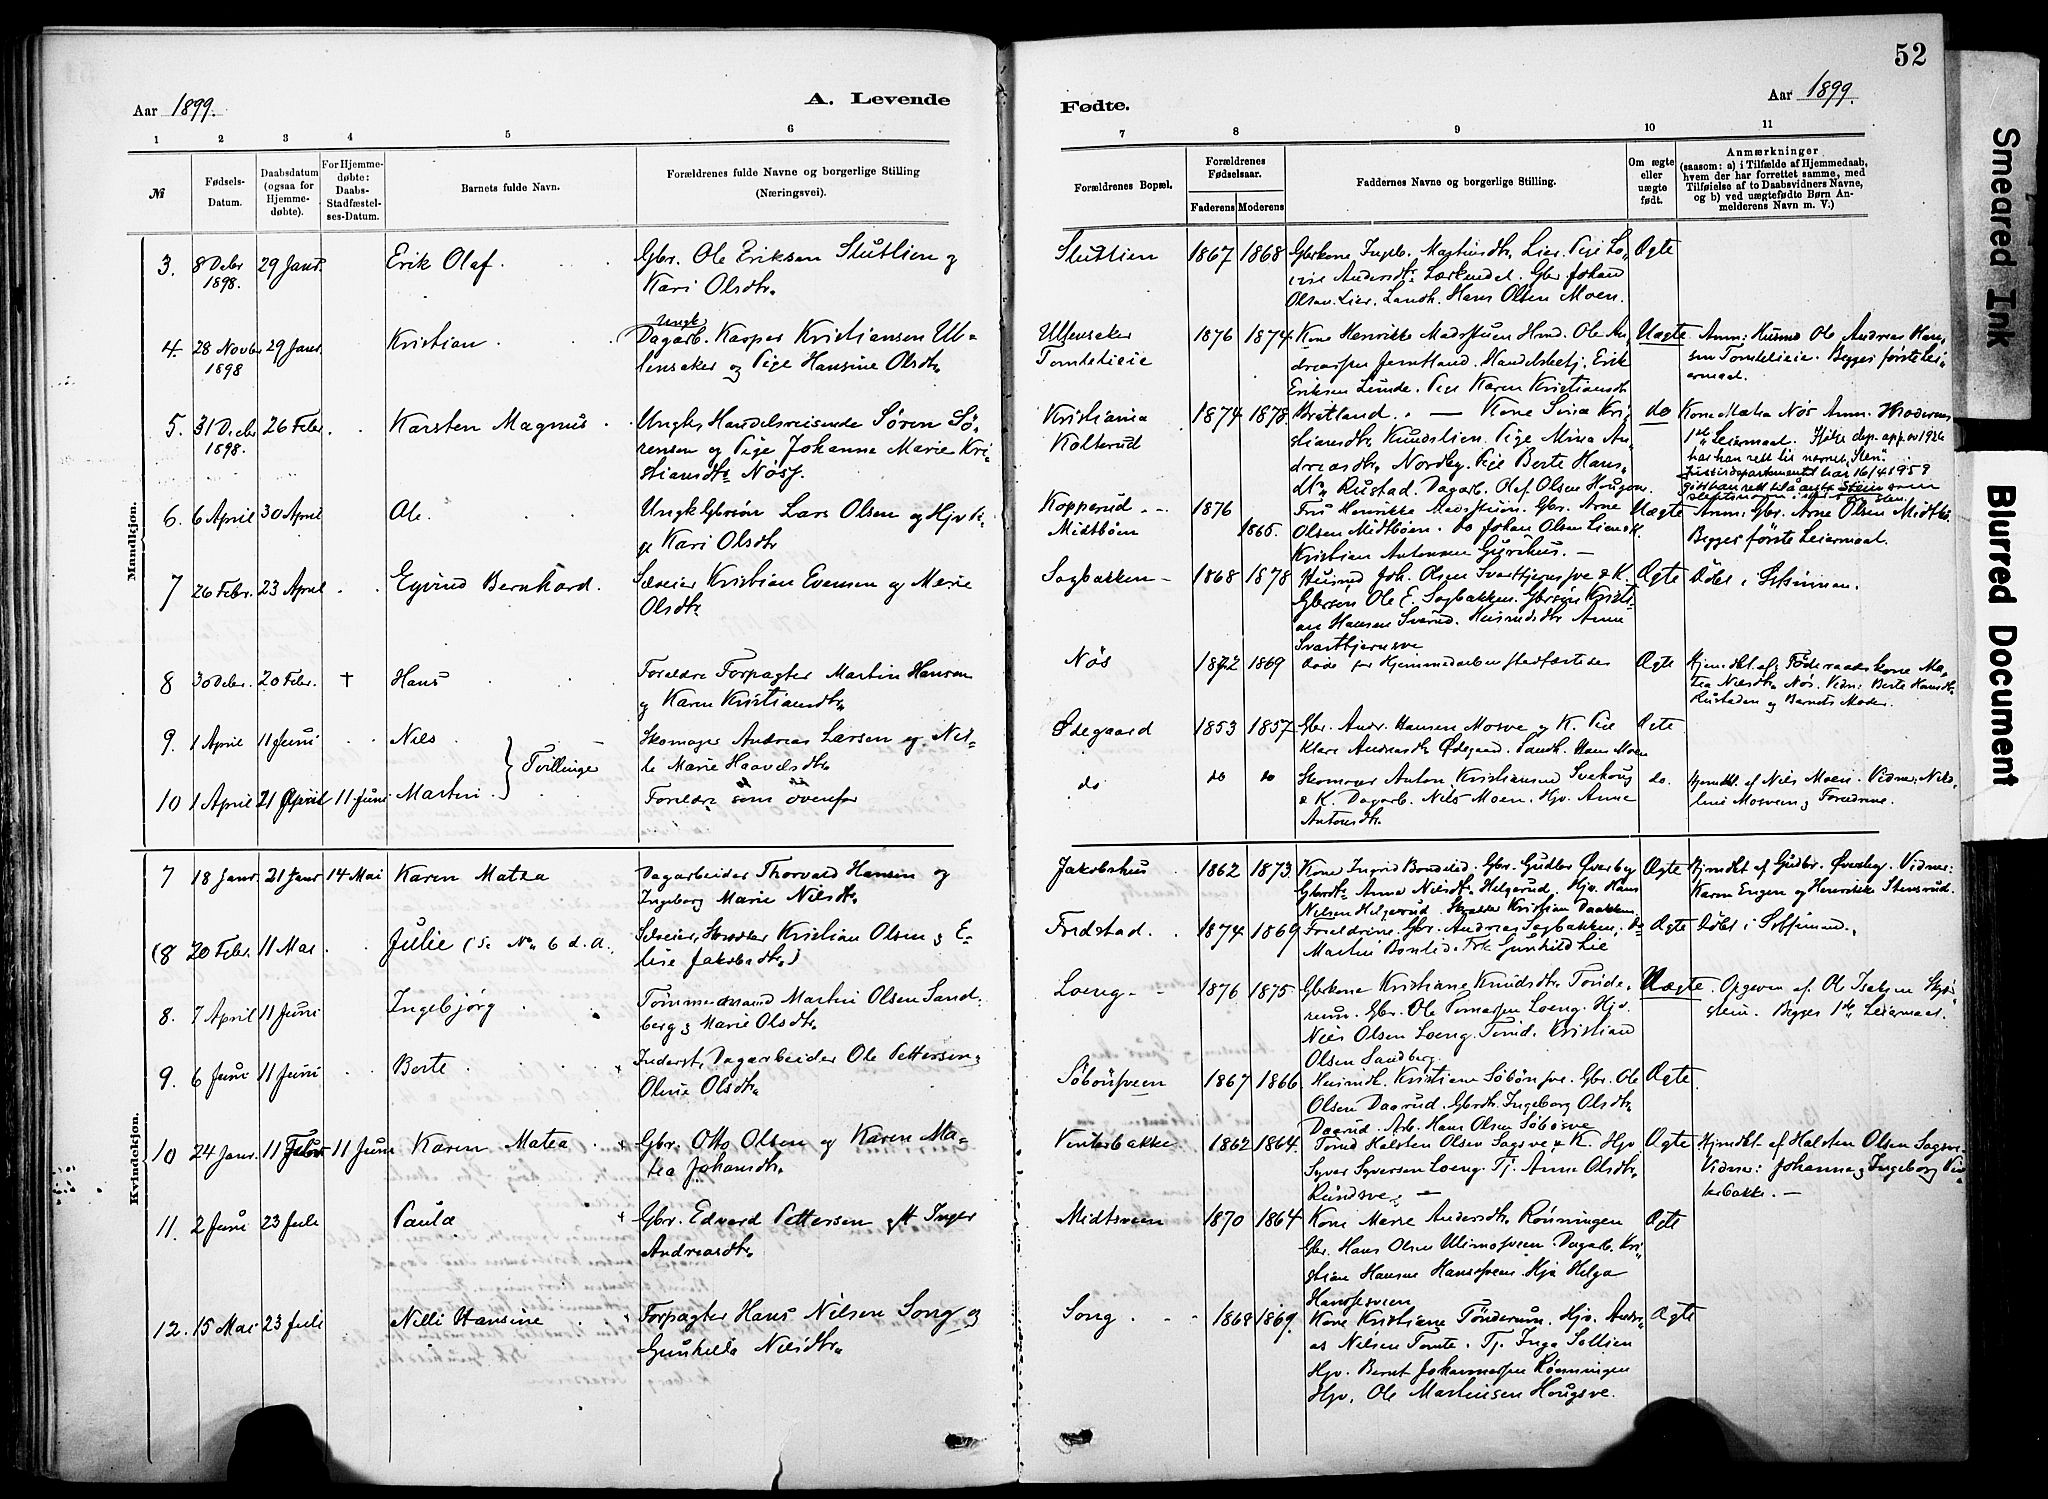 52
Aar 1899.
A. Levende
Fødte.
Aar 1899.
1 2 3 4 5 6 7 8 9 10 11
№
Fødsels-
Datum.
Daabsdatum
(ogsaa for
Hjemme-
døbte).
For Hjemme-
døbte:
Daabs-
Stadfæstel-
ses-Datum.
Barnets fulde Navn.
Forældrenes fulde Navne og borgerlige Stilling
(Næringsvei).
Forældrenes Bopæl.
Forældrenes
Fødselsaar.
Faderens Moderens
Faddernes Navne og borgerlige Stilling.
Om ægte
eller
uægte
født.
Anmærkninger
(saasom: a) i Tilfælde af Hjemmedaab,
hvem der har forrettet samme, med
Tilføielse af to Daabsvidners Navne,
og b) ved uægtefødte Børn An-
melderens Navn m. V.)
Mandkjøn.
3. 8 Debr 29 Janr. Erik Olaf. Gbr. Ole Eriksen Slutlien og
1898.
Kari Olsdtr.
Slutlien 1867 1868 Gbrkone Ingeb. Martinsdtr. Lier. Pige Lo-
Andersdtr. Lærkendal. Gbr Johan
Olsen Lier. Landh. Hans Olsen Moen.
Ægte
4. 28 Novbr 29 Janr. Kristian
1898
Ungk
Dagarb. Kasper Kristiansen Ul-
lensaker og Pige Hansine Olsdtr.
Ullensaker
Tomteleie
1876 1874
Kone Henrikke Madshuen Hmd. Ole An-
dreassen Jerntland. Handelsbetj. Erik
Eriksen Linde. Pige Karen Kristiansdtr
Uægte
Anm: Husmd Ole Andreas Han-
sen Tomteleie. Begges første Lei-
ermaal.
5. 31 Debr 26 Febr. Karsten Magnus
1898.
Ungk. Handelsreisende Søren Sö-
rensen og Pige Johanne Marie Kri-
stiansdtr Nøss.
Kristiania
Kolterud
1874 1878
Bratland. — Kone Sina Kri-
stiansdtr. Knudslien. Pige Mina An-
dreasdtr. Nordby. Pige Berte Hans-
dtr. Rustad. Dagarb. Olaf Olsen Haugen.
do
Kone Matea Nøs Anm. Moderens
1ste Leiermaal. Ifølge dep. app. av 1926
har han rett til navnet „Sten".
Justisdepartementet har 16/4 1959
gitt han rett til å ante Stein som
6. 6 April 30 April Ole. Ungk Gbrsön Lars Olsen og Hjv K.
Kari Olsdtr
Kopperud
Midtböen
1876
1865.
Fru Henrikke Madshuen. Gbr. Arne
Olsen Midtböen. do Johan Olsen Lien K.
Kristian Antonsen Gurihus. —
Uægte
Anm: Gbr. Arne Olsen Midtbö.
Begges første Leiermaal.
7 26 Febr. 23 April Eyvind Bernhard. Selveier Kristian Evensen og Marie
Olsdtr
Sagbakken 1868 1878
Husmd Joh. Olsen Svarttjernsve & K.
Gbrsön Ole E. Sagbakken. Gbrsön Kristi-
an Hansen Sverud. Husmdsdtr Anne
Svarttjernsve
Ægte Döbt i
8 30 Debr. 20 Febr. † Hans Foreldre Forpagter Martin Hansen
og Karen Kristiansdtr.
Nøs 1872 1869 Døde før Hjemmedaaben stadfæstedes Ægte
Hjemdbt af Föderaadskone Ma-
tea Nilsdtr. Nøs. Vidn: Berte Hansdtr.
Rustaden og Barnets Moder.
9. 1 April 11 Juni Nils Skomager Andreas Larsen og Nil-
le Marie Haavelsdtr
} Tvillinger
Ødegaard 1853 1857
Gbr. Andr. Hansen Mosve og K. Pige
Klara Andreasdtr Ødegaard. Landh. Hans Moen
Ægte
10 1 April 21 April 11 Juni Martin Foreldre som ovenfor
do do do
Skomager Anton Kristiansen Svehaug
& K. Dagarb. Nils Moen. Hjv. Anne
Antonsdtr.
do.
Hjemdbt. af Nils Moen. Vidne: Nil-
line Mosveen og Foreldrene.
Kvindekjøn.
7 18 Janr. 21 Janr 14 Mai Karen Matea Dagarbeider Thorvald Hansen og
Ingeborg Marie Nilsdtr.
Jakobshus 1862 1873
Kone Ingrid Bondelid. Gbr. Gudbr Øverby
Gbrdtr Anne Nilsdtr. Helgerud. Hjv. Hans
Nilsen Helgerud. Skrædder Kristian Daakken
Ægte
Hjemdbt af Gudbr. Øverby. Vidner:
Karen Engen og Henrikke Stensrud.
(8 20 Febr. 11 Mai Julie (Se No 6 d. A. Selveier, Skrædder Kristian Olsen & E-
lise Jakobsdtr.)
Fredstad. 1874 1869
Foreldrene. Gbr. Andreas Sagbakken, do
Martin Bonlid. Frk Gunhild Lie
Ægte Döbt i
8. 7 April 11 Juni Ingebjörg Tömmermand Martin Olsen Sand-
berg & Marie Olsdtr.
Loeng. 1876 1875
Gbrkone Kristiane Knudsdtr. Tönde-
rum. Gbr. Ole Tomassen Loeng. Hjv.
Nils Olsen Loeng. Tmd. Kristian
Olsen Sandberg.
Uægte. Opgiven af Ole Isaksen
Begges 1ste Leiermaal.
9. 6 Juni 11 Juni Berte Inderst, Dagarbeider Ole Pettersen &
Oline Olsdtr.
Söbönsveen 1867 1866
Husmdk. Kristiane Söbönsve. Gbr. Ole
Olsen Daarud. Gbrdtr. Ingeborg Olsdtr.
Daarud. Arb. Hans Olsen Söbönsve
Ægte
10 24 Janr. 11 Febr 11 Juni Karen Matea Gbr. Otto Olsen og Karen Ma-
tea Johansdtr.
Vinterbakke 1862 1864.
Tmd Halsten Olsen Sagsve & K. Hjv
Syver Syversen Loeng. Tj. Anne Olsdtr.
Rundsve. —
Ægte
Hjemdbt af Halsten Olsen Sagsve.
Vidner: Johanne & Ingeborg Vin-
terbakke. —
11. 2 Juni 23 Juli Paula Gbr. Edvard Pettersen & Inger
Andreasdtr.
Midtsveen 1870 1864
Kone Marie Andersdtr. Rönningen
Gbr. Hans Olsen Ulimosveen. Dagarb. Kri-
stian Hansen Hanssveen. Hja Helga
Hanssesveen
Ægte
12. 15 Mai 23 Juli Nilli Hansine Forpagter Hans Nilsen Song og
Gunhilla Nilsdtr.
Song 1868 1869.
Kone Kristiane Tönderum. Hjv. Andre-
as Nilsen Tomte. Tj. Inga Sollien
Hjv. Bernt Johannessen Rönningen
Hjv. Ole Martinsen Hougsve.
Ægte
Smeared Ink
Blurred Document